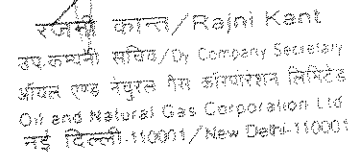 रजनी कान्त/Rajni Kant
उप.कम्पनी सचिव/Dy Company Secretary
ऑयल एण्ड नेचुरल गैस कॉरपोरेशन लिमिटेड
Oil and Natural Gas Corporation Ltd
नई दिल्ली-110001/New Delhi-110001